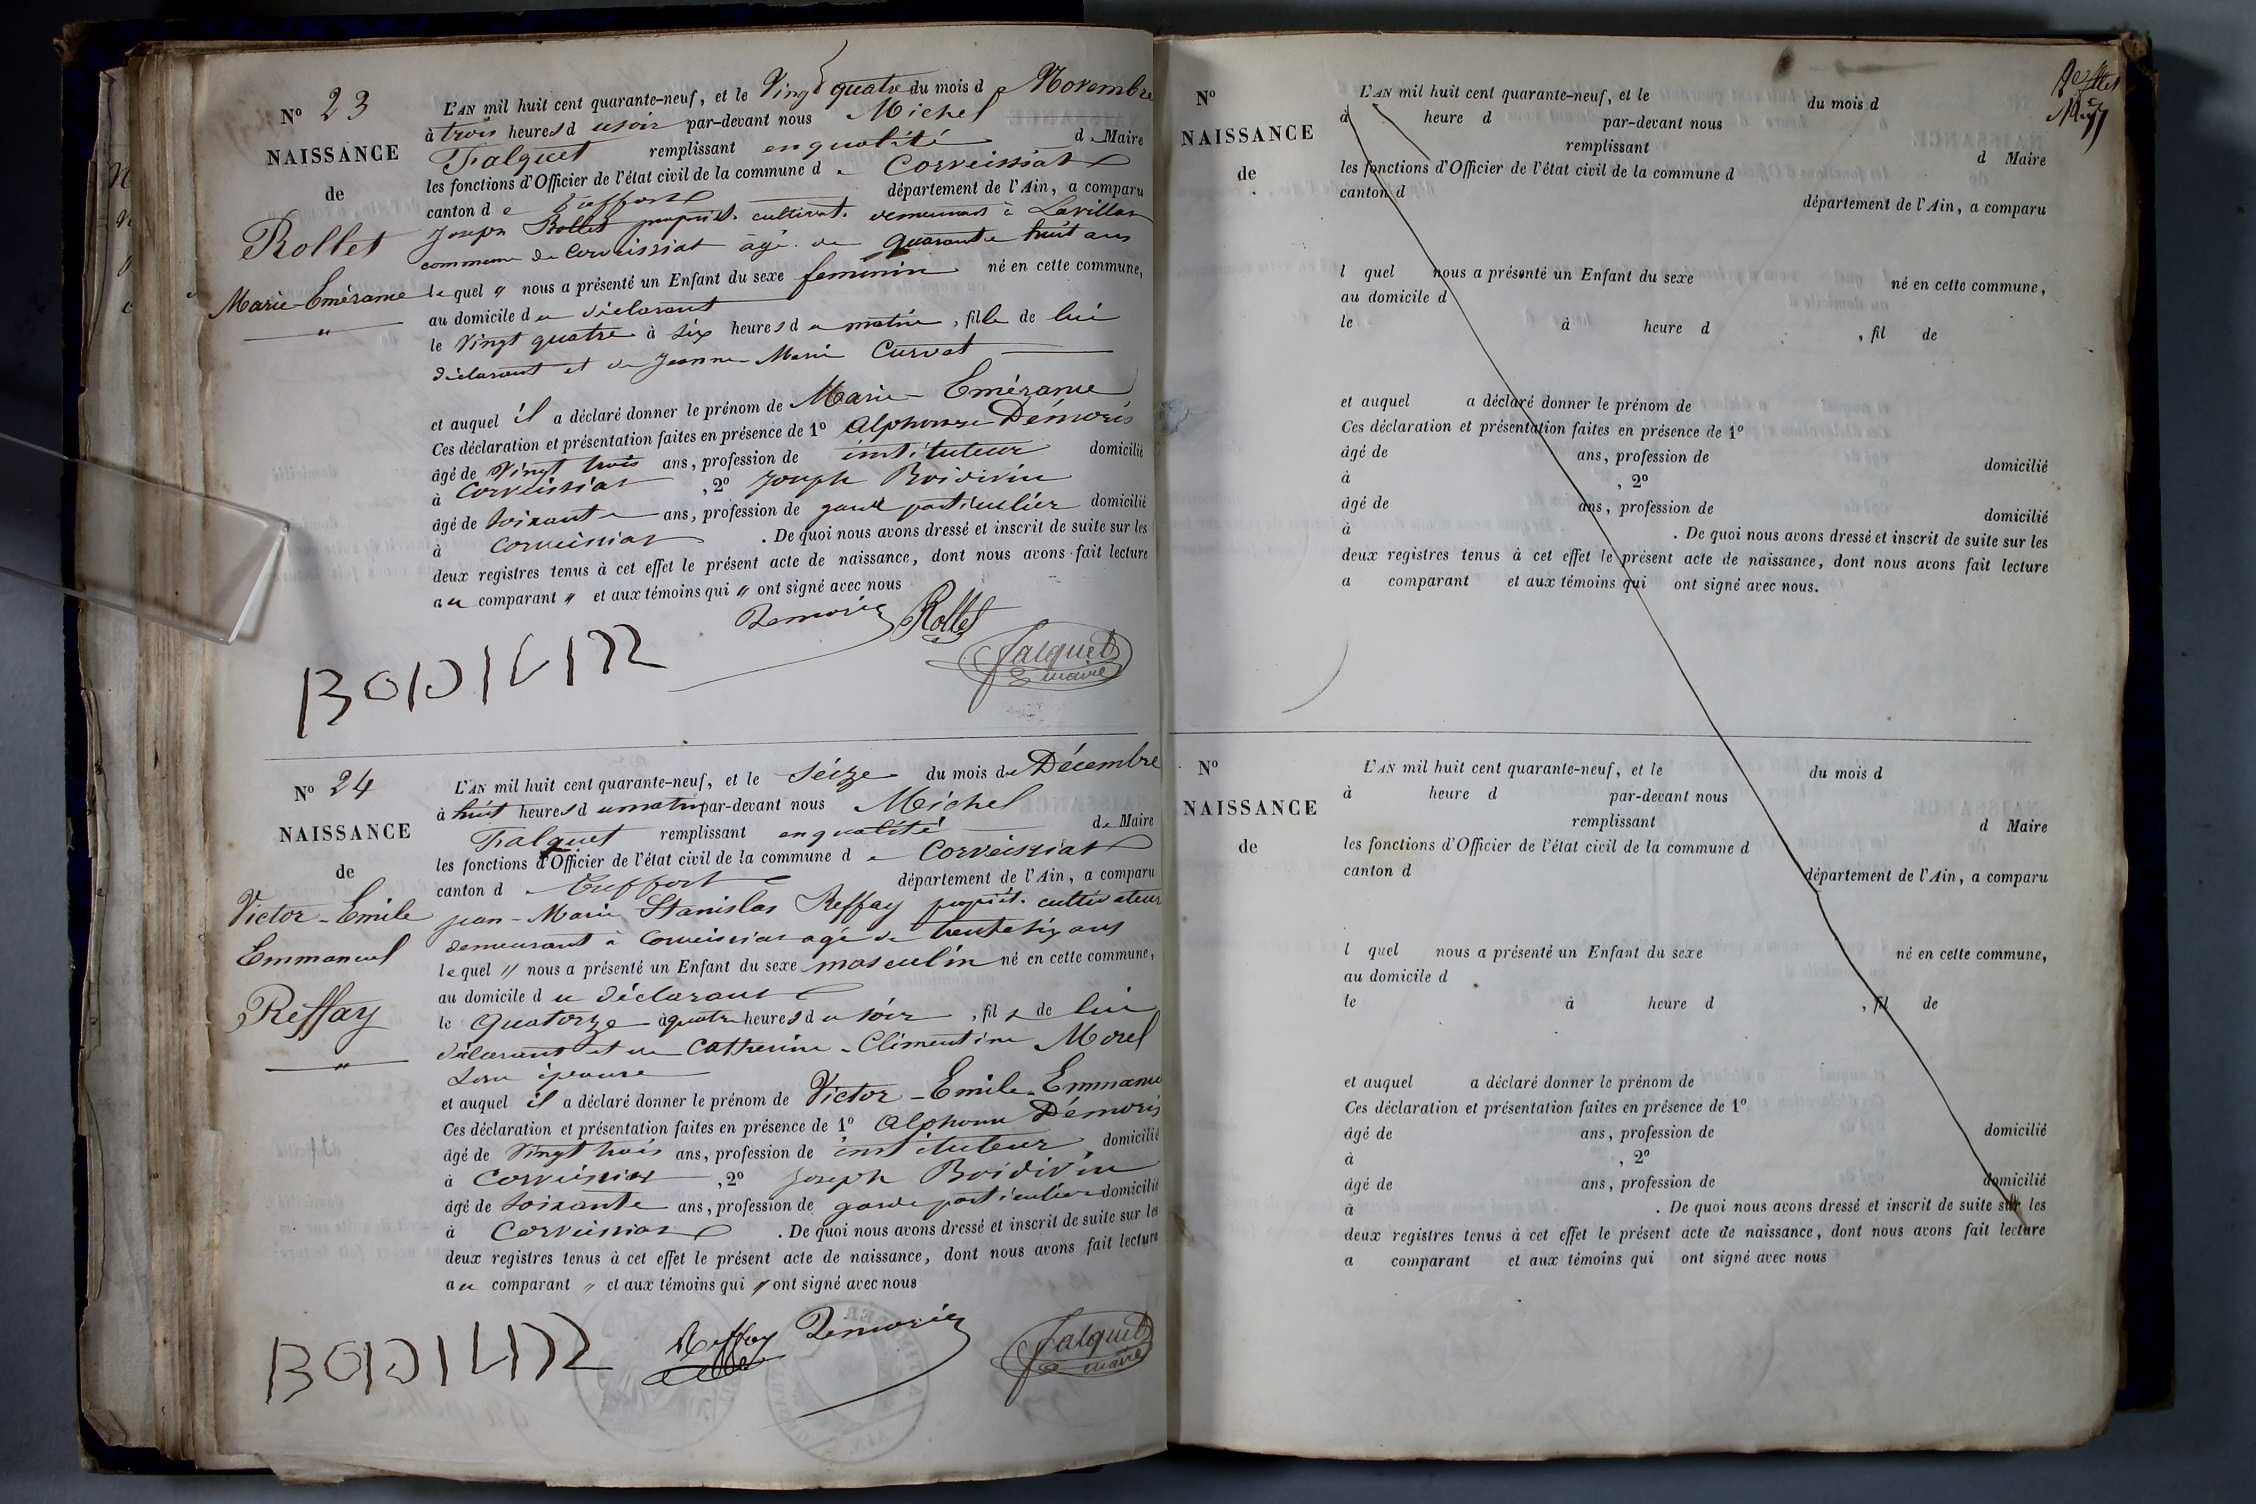 N° 23
NAISSANCE
de
Rollet
Marie-Emérame
L'AN mil huit cent quarante-neuf, et le Vingt quatre du mois de Novembre
à trois heures du soir par-devant nous Michel
Falquet remplissant en qualité de Maire
les fonctions d'Officier de l'état civil de la commune de Corveissiat
canton de Treffort département de l'Ain, a comparu
Joseph Rollet propriét. cultivat. demeurant à Lavillat
commune de Corveissiat âgé de quarante huit ans
lequel " nous a présenté un Enfant du sexe feminin né en cette commune,
au domicile du déclarant
le Vingt quatre à six heures du matin, fille de lui
déclarant et de Jeanne-Marie Curvat
et auquel il a déclaré donner le prénom de Marie-Emérame
Ces déclaration et présentation faites en présence de 1° Alphonse Démoris
âgé de Vingt trois ans, profession de instituteur domicilié
à Corveissiat, 2° Joseph Boidivin
âgé de soixante ans, profession de garde particulier domicilié
à Corveissiat. De quoi nous avons dressé et inscrit de suite sur les
deux registres tenus à cet effet le présent acte de naissance, dont nous avons fait lecture
au comparant " et aux témoins qui " ont signé avec nous
Demoris Rollet
Falquet
maire
N° 24
NAISSANCE
de
Victor-Emile
Emmanuel
Reffay
L'AN mil huit cent quarante-neuf, et le Séize du mois de Décembre
à huit heures du matin par-devant nous Michel
Falquet remplissant en qualité de Maire
les fonctions d'Officier de l'état civil de la commune de Corveissiat
canton de Treffort département de l'Ain, a comparu
Jean-Marie Stanislas Reffay propriét. cultivateur
demeurant à Corveissiat agé de trente six ans
lequel " nous a présenté un Enfant du sexe masculin né en cette commune,
au domicile du déclarant
le Quatorze à quatre heures du soir, fils de lui
déclarant et de Catherine-Clémentine Morel
son épouse
et auquel il a déclaré donner le prénom de Victor-Emile-Emmanu
Ces déclaration et présentation faites en présence de 1° Alphonse Démoris
âgé de Vingt trois ans, profession de instituteur domicilié
à Corveissiat, 2° Joseph Boidivin
âgé de soixante ans, profession de garde particulier domicilié
à Corveissiat. De quoi nous avons dressé et inscrit de suite sur les
deux registres tenus à cet effet le présent acte de naissance, dont nous avons fait lecture
au comparant " et aux témoins qui " ont signé avec nous
Reffay Demoris Falquet
maire
N°
NAISSANCE
de
L'AN mil huit cent quarante-neuf, et le du mois d
à heure d par-devant nous
remplissant d Maire
les fonctions d'Officier de l'état civil de la commune d
canton d département de l'Ain, a comparu
l quel nous a présenté un Enfant du sexe né en cette commune,
au domicile d
le à heure d , fil de
et auquel a déclaré donner le prénom de
Ces déclaration et présentation faites en présence de 1°
âgé de ans, profession de domicilié
à , 2°
âgé de ans, profession de domicilié
à . De quoi nous avons dressé et inscrit de suite sur les
deux registres tenus à cet effet le présent acte de naissance, dont nous avons fait lecture
a comparant et aux témoins qui ont signé avec nous.
N°
NAISSANCE
de
L'AN mil huit cent quarante-neuf, et le du mois d
à heure d par-devant nous
remplissant d Maire
les fonctions d'Officier de l'état civil de la commune d
canton d département de l'Ain, a comparu
l quel nous a présenté un Enfant du sexe né en cette commune,
au domicile d
le à heure d , fil de
et auquel a déclaré donner le prénom de
Ces déclaration et présentation faites en présence de 1°
âgé de ans, profession de domicilié
à , 2°
âgé de ans, profession de domicilié
à . De quoi nous avons dressé et inscrit de suite sur les
deux registres tenus à cet effet le présent acte de naissance, dont nous avons fait lecture
a comparant et aux témoins qui ont signé avec nous